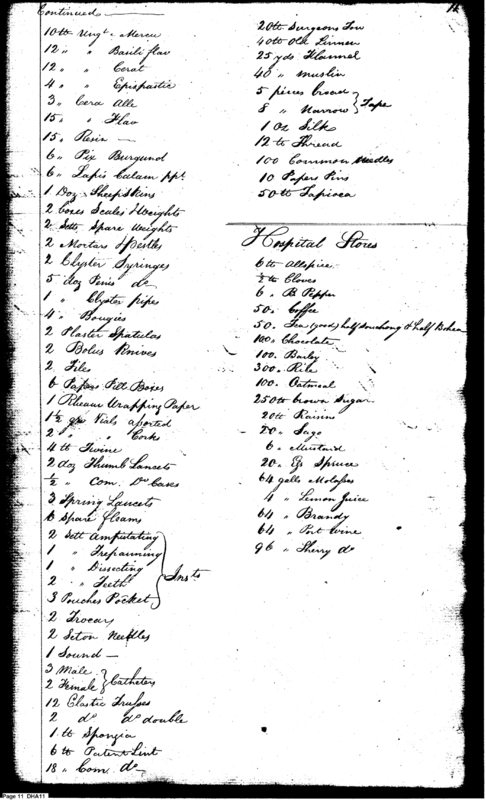 Continued
10 lb Ungt. Mercu
12 " " Basili flav
12 " " Cerat
4 " " Epispastic
3 " Cera Alb
15 " " Flav
15 " Resin
6 " Pix Burgund
6 " Lapis Calam ppt
1 Doz Sheep Skins
2 boxes Scales & Weights
2 Setts Spare Weights
2 Mortars & Pestles
2 Clyster Syringes
5 doz Penis do
1 " Clyster pipes
4 " Bougies
2 Plaster Spatulas
2 Bolus Knives
2 Files
6 Papers Pill Boxes
1 Rheam Wrapping Paper
1½ gro Vials assorted
2 " " Corks
4 lb Twine
2 doz Thumb Lancets
½ " Com. Do Cases
3 Spring Lancets
6 Spare fleams
2 Sett Amputating
1 " Trepanning
1 " Dissecting
2 " Teeth
3 Pouches Pocket
Insts
2 Trocars
2 Seton Needles
1 Sound
3 Male
2 Female
Catheters
12 Elastic Trusses
2 do do double
1 lb Spongia
6 lb Patent Lint
18 " Com. do
20 lb Surgeons Tow
40 lb Old Linnen
25 yds Flannel
40 " muslin
5 pieces broad
8 " Narrow
Tape
1 Oz Silk
12 lb Thread
100 Common Needles
10 Papers Pins
50 lb Tapioca
Hospital Stores
6 lb Allspice
½ lb Cloves
6 " B Pepper
50 " Coffee
50 " Tea (good) half Souchong & half Bohea
100 " Chocolate
100 " Barley
300 " Rice
100 " Oatmeal
250 lb brown Sugar
20 lb Raisins
20 " Sago
6 " Mustard
20 " Es Spruce
64 galls Molasses
4 " Lemon Juice
64 " Brandy
64 " Port Wine
96 " Sherry do
Page 11 DHA11